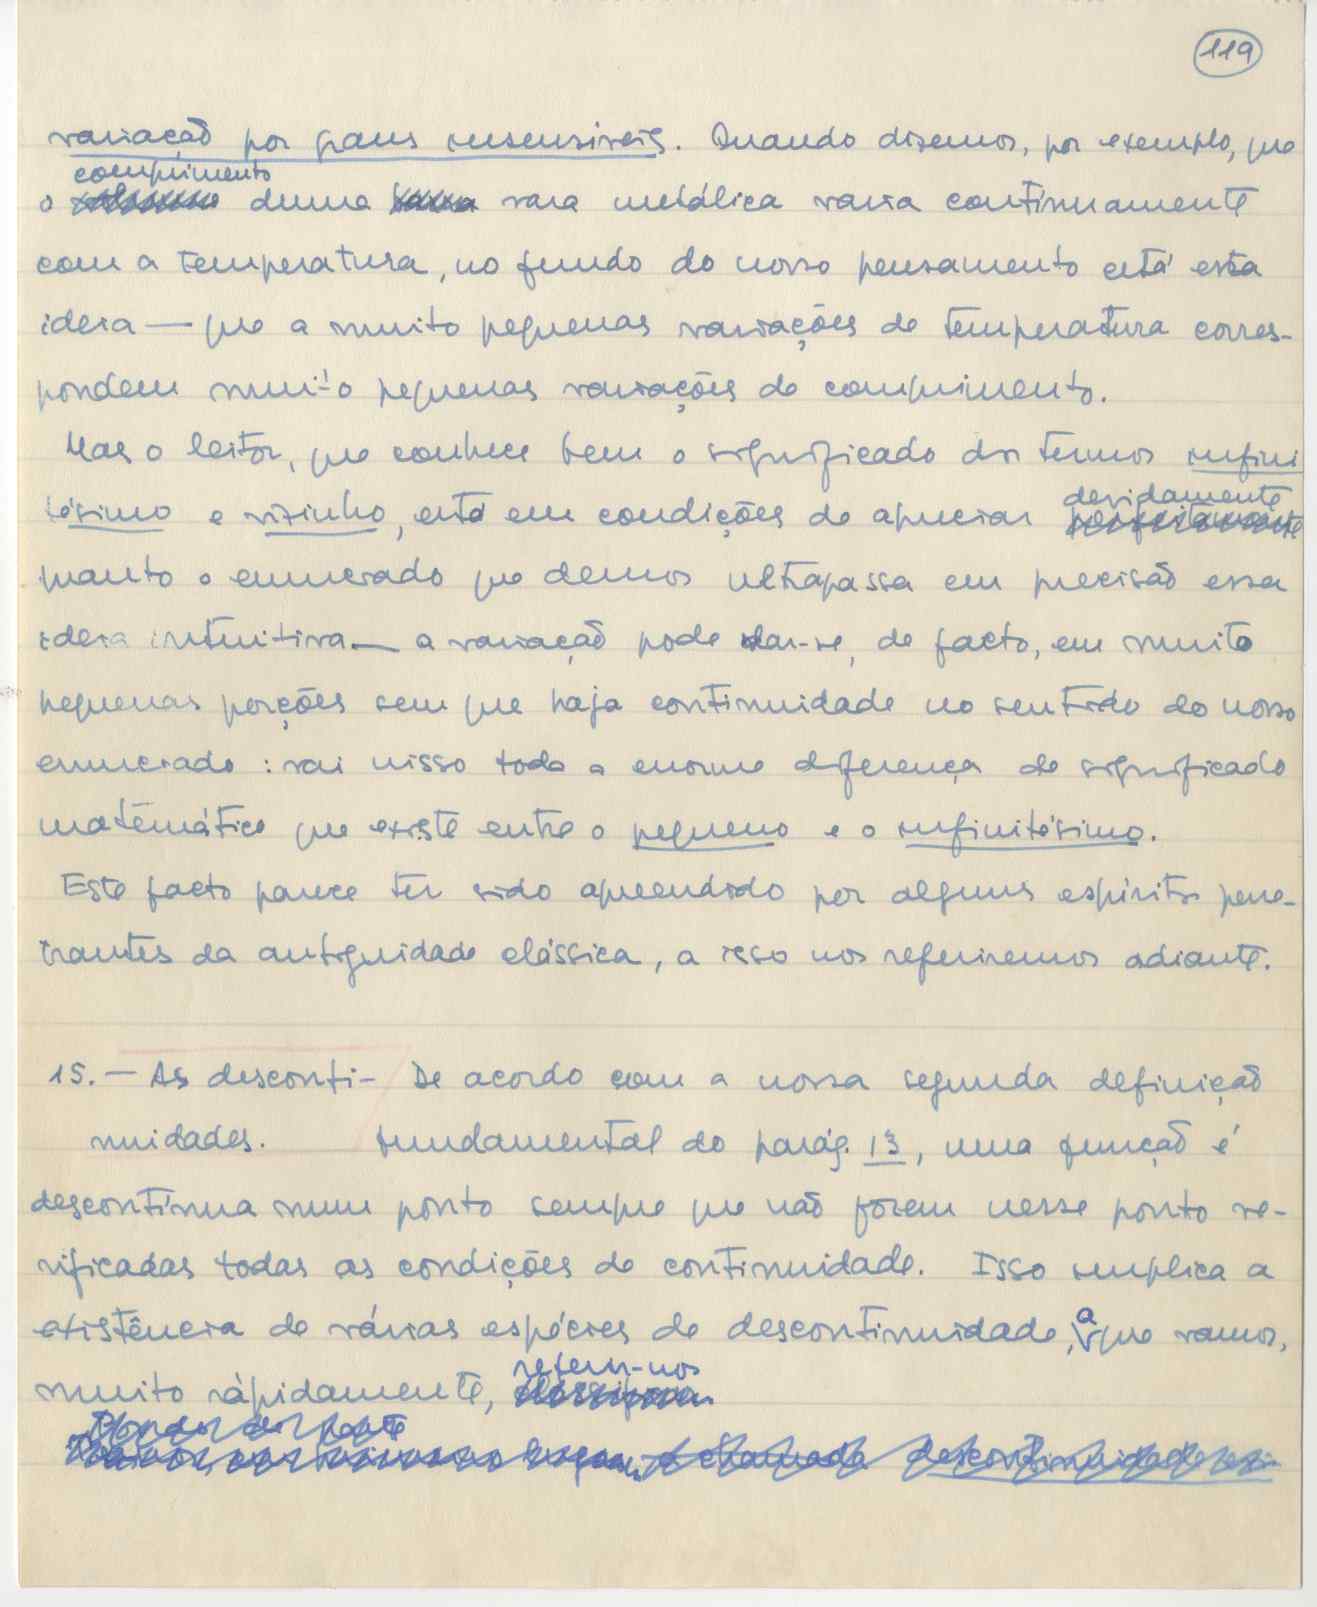 119
variação por graus insensíveis. Quando dizemos, por exemplo, que
comprimento
o duma vara metálica varia continuamente
com a temperatura, no fundo do nosso pensamento está esta
ideia — que a muito pequenas variações de temperatura corres-
pondem muito pequenas variações de comprimento.
Mas o leitor, que conhece bem o significado dos termos infini
tésimo e vizinho, está em condições de apreciar
devidamente
quanto o enunciado que demos ultrapassa em precisão essa
ideia intuitiva — a variação pode dar-se, de facto, em muito
pequenas porções sem que haja continuidade no sentido do nosso
enunciado : vai nisso toda a enorme diferença de significado
matemático que existe entre o pequeno e o infinitésimo.
Este facto parece ter sido apreendido por alguns espíritos pene-
trantes da antiguidade clássica, a isso nos referiremos adiante.
15. — As desconti- De acordo com a nossa segunda definição
nuidades. fundamental do parág. 13, uma função é
descontínua num ponto sempre que não forem nesse ponto ve-
rificadas todas as condições de continuidade. Isso implica a
existência de várias espécies de descontinuidade, a que vamos,
muito ràpidamente, referir-nos